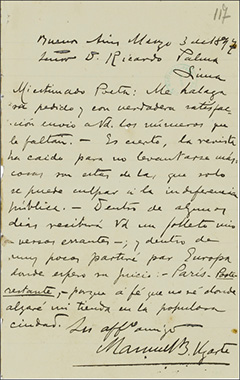 117
Buenos Aires Marzo 3 de 1897
Señor D. Ricardo Palma
Lima
Mi estimado Poeta: Me halaga
su pedido y con verdadera satisfac-
ción envío a Vd. los números que
le faltan. — Es cierto, la revista
ha caído para no levantarse más,
cosas son estas de las que solo
se puede culpar a la indiferencia
pública. — Dentro de algunos
días recibirá Vd un folleto mío
— versos errantes —; y dentro de
muy pocos partiré para Europa
donde espero su juicio. — París. Poste
restante, — porque a fé que no sé donde
alzaré mi tienda en la populosa
ciudad.
Su affmo amigo
Manuel B. Ugarte